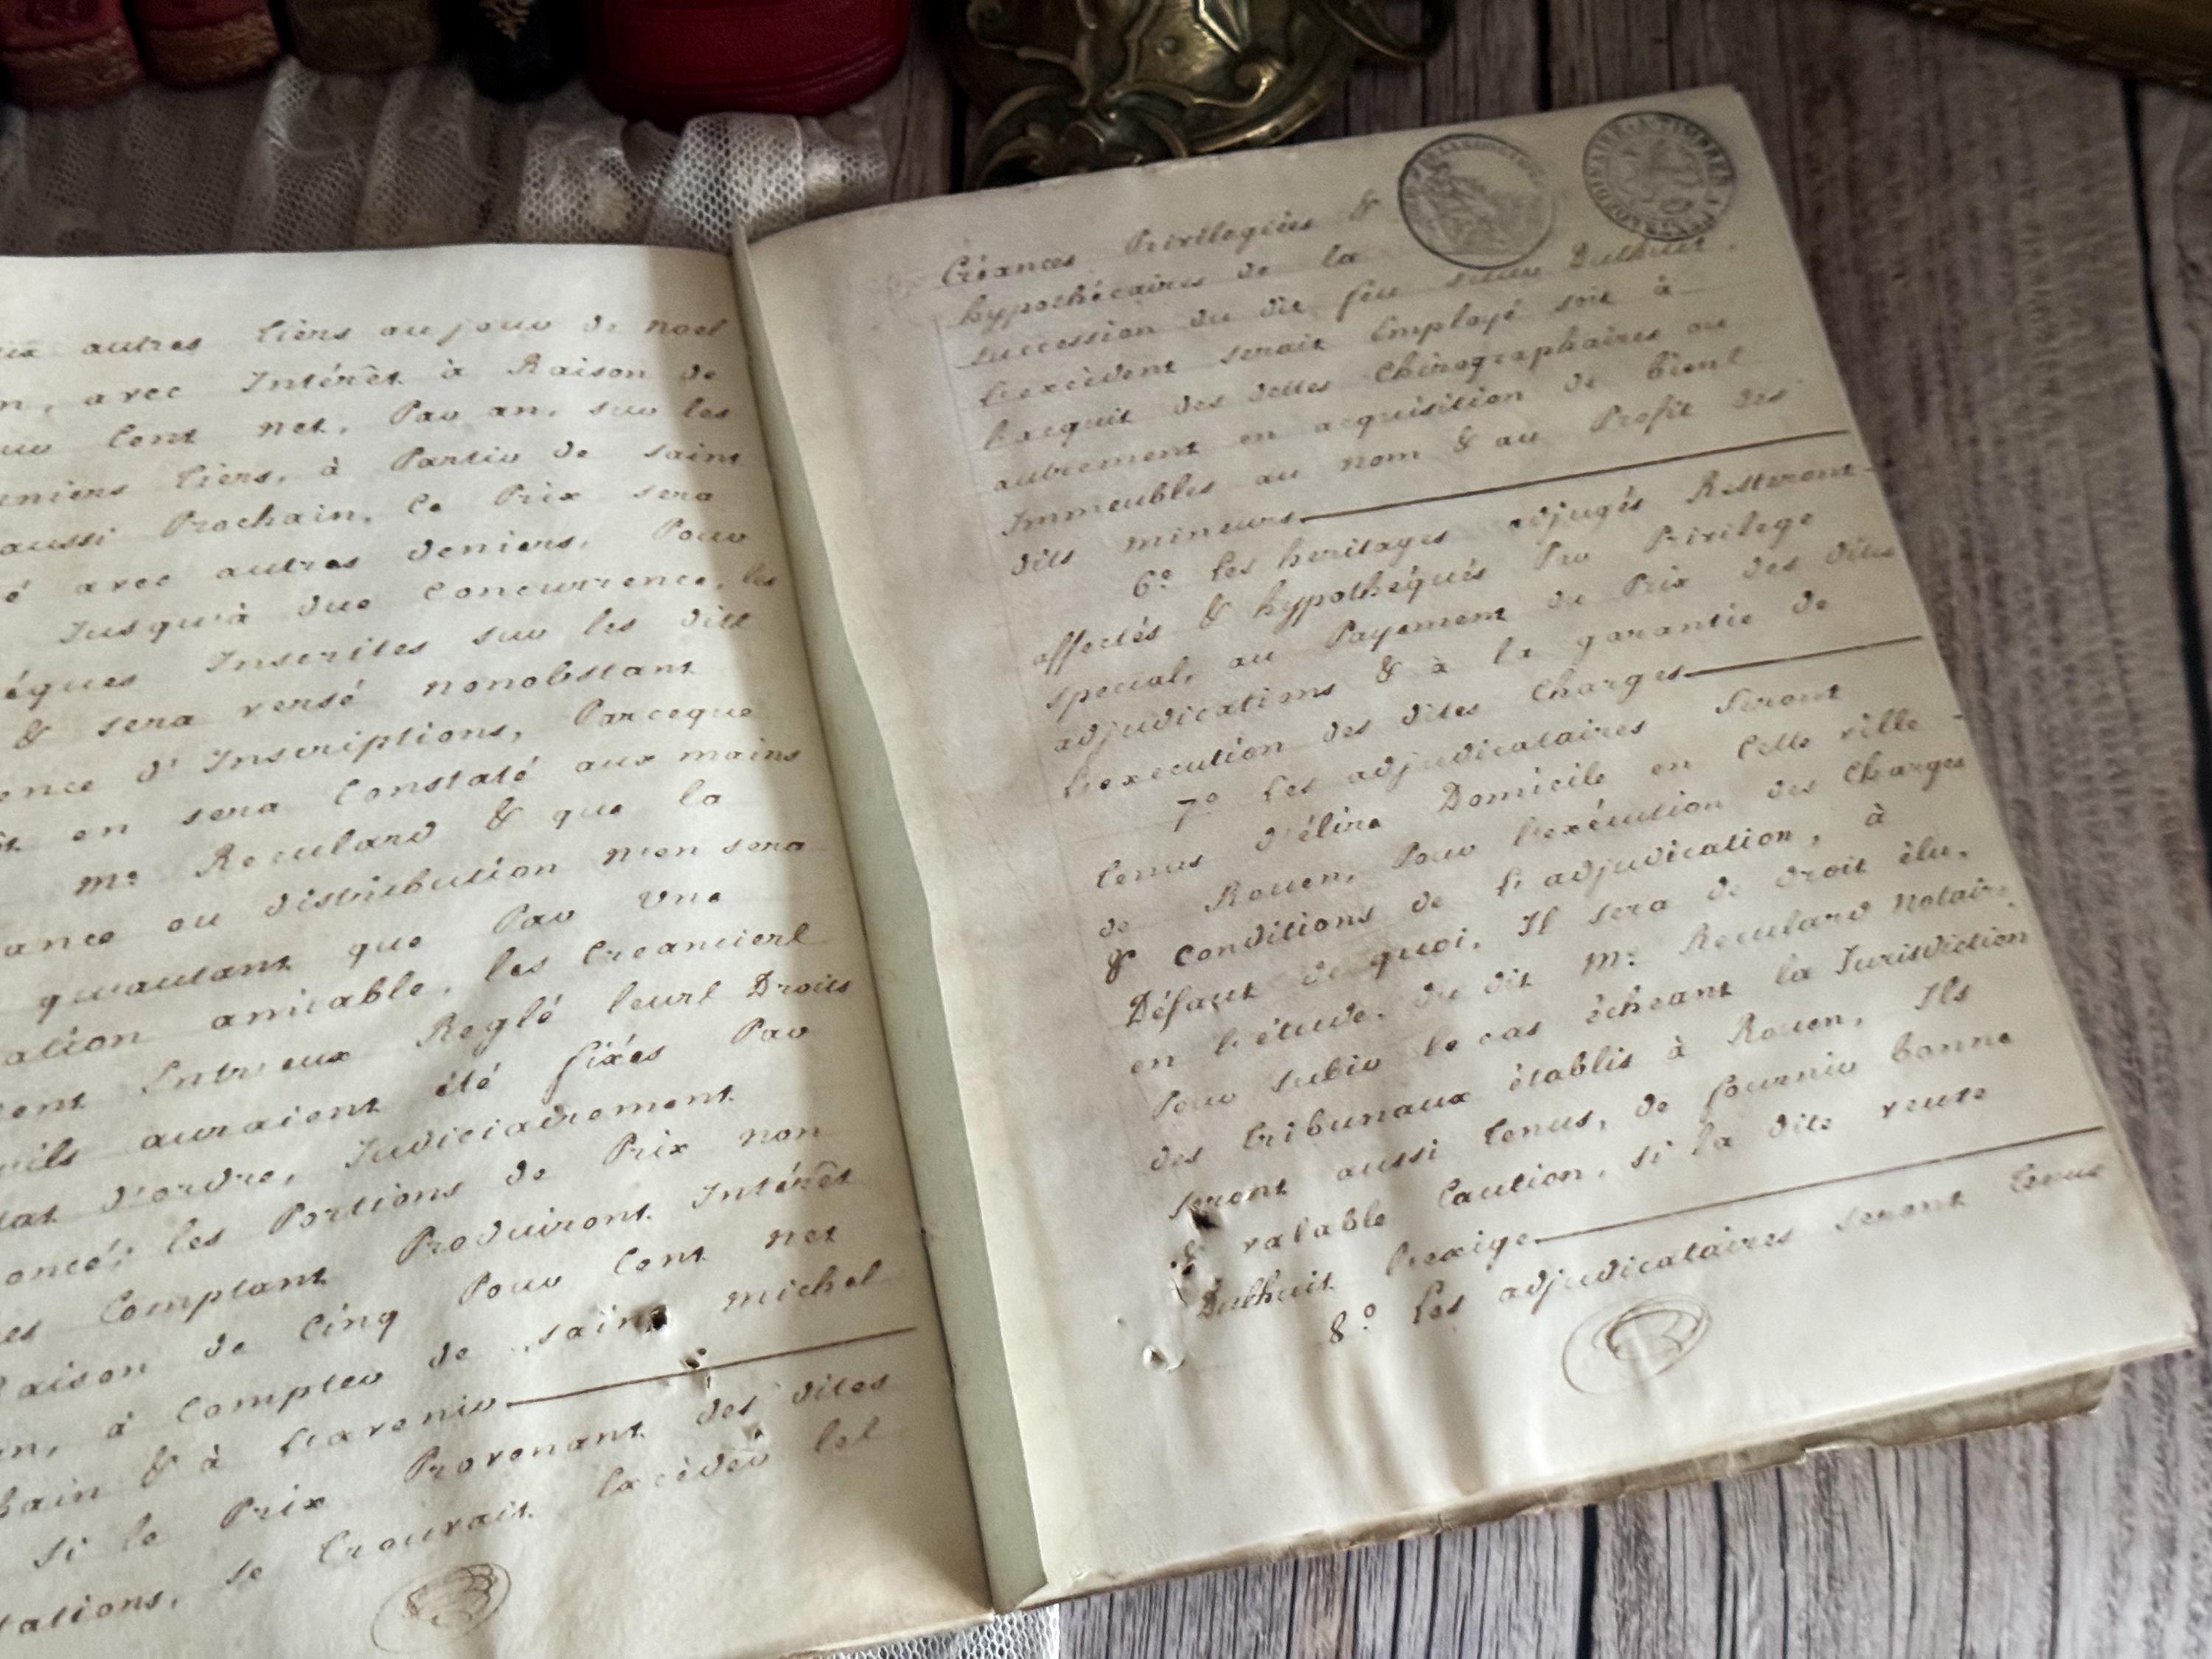 autres tiers au jour de noel
n, avec Intérêt à Raison de
Cent net, Par an, sur les
niers tiers, à Partir de saint
aussi Prochain, Ce Prix sera
é avec autres deniers, Pour
Jusqu'à due Concurrence, les
éques Inscrites sur les dits
& sera versé nonobstant
ence d'Inscriptions, Parceque
en sera Constaté aux mains
me Reculard & que la
ance ou distribution n'en sera
qu'autant que Par une
ation amiable, les Creanciers
ent Entr'eux Reglé leurs Droits
u'ils auraient été fixées Par
tat d'ordre, Judiciairement
oncé; les Portions de Prix non
es Comptant Produiront Intérêt
Raison de Cinq Pour Cent net
n, à Compter de saint michel
hain & à L'avenir
si le Prix Provenant des dites
tations, se trouvait Excéder les
Créances Privilegiées &
hypothécaires de la
succession du dit feu sieur Dulhuit.
L'excèdent serait Employé soit à
L'acquit des dettes Chirographaires ou
autrement en acquisition de biens
Immeubles au nom & au Profit des
dits mineurs
6º Les heritages adjugés Resteront
affectés & hypothéqués Par Privilege
special, au Payement du Prix des dites
adjudications & à la garantie de
L'execution des dites Charges
7º Les adjudicataires seront
tenus d'élire Domicile en Cette ville
de Rouen, Pour L'exécution des Charges
& Conditions de L'adjudication, à
Défaut de quoi, Il sera de droit élu,
en L'étude, du dit me Reculard Notaire,
Pour subir le cas échéant la Jurisdiction
des tribunaux établis à Rouen, Ils
seront aussi tenus, de fournir bonne
& valable Caution, si la dite veuve
Dulhuit L'exige
8º Les adjudicataires seront tenus